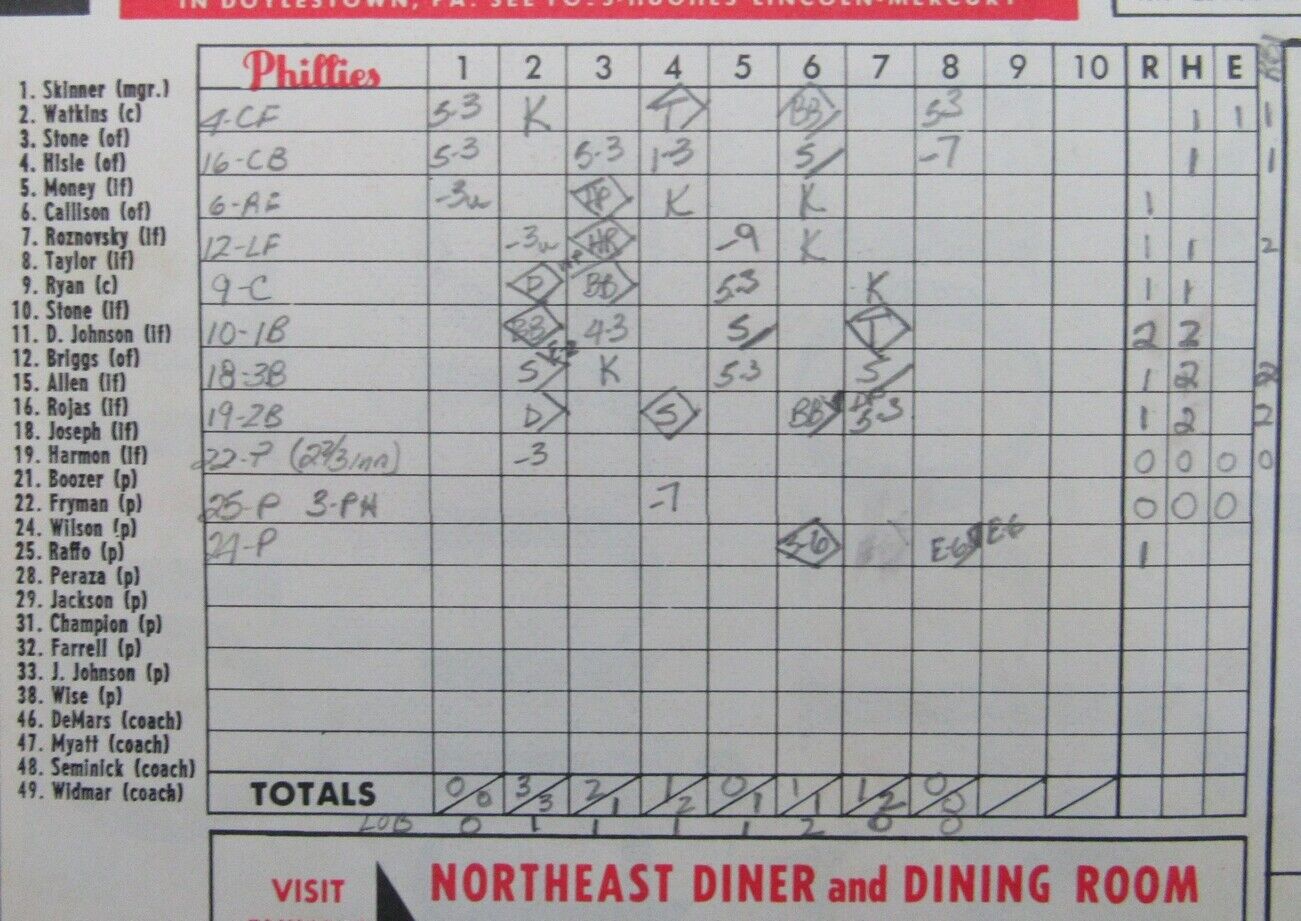 IN DOYLESTOWN, PA. SEE
LINCOLN-MERCURY
Phillies 1 2 3 4 5 6 7 8 9 10 R H E RBI
1. Skinner (mgr.)
2. Watkins (c)
3. Stone (of)
4. Hisle (of)
5. Money (if)
6. Callison (of)
7. Roznovsky (if)
8. Taylor (if)
9. Ryan (c)
10. Stone (if)
11. D. Johnson (if)
12. Briggs (of)
15. Allen (if)
16. Rojas (if)
18. Joseph (if)
19. Harmon (if)
21. Boozer (p)
22. Fryman (p)
24. Wilson (p)
25. Raffo (p)
28. Peraza (p)
29. Jackson (p)
31. Champion (p)
32. Farrell (p)
33. J. Johnson (p)
38. Wise (p)
46. DeMars (coach)
47. Myatt (coach)
48. Seminick (coach)
49. Widmar (coach)
4-CF 5-3 K T BB 5-3 1 1 1
16-CB 5-3 5-3 1-3 S -7 1 1
6-RF -3u K K 1
12-LF -3u HR -9 K 1 1 2
9-C D BB 5-3 K 1 1
10-1B 4-3 S T 2 2
18-3B S K 5-3 S 1 2 2
19-2B D S BB DP 5-3 1 2 2
22-P (2 2/3 inn) -3 0 0 0 0
25-P 3-PH -7 0 0 0
E-6 E-6 1
TOTALS 0/0 3/3 2/1 1/2 0/1 1/1 1/2 0/0
LOB 0 1 1 1 1 2 0 0
VISIT
NORTHEAST DINER and DINING ROOM